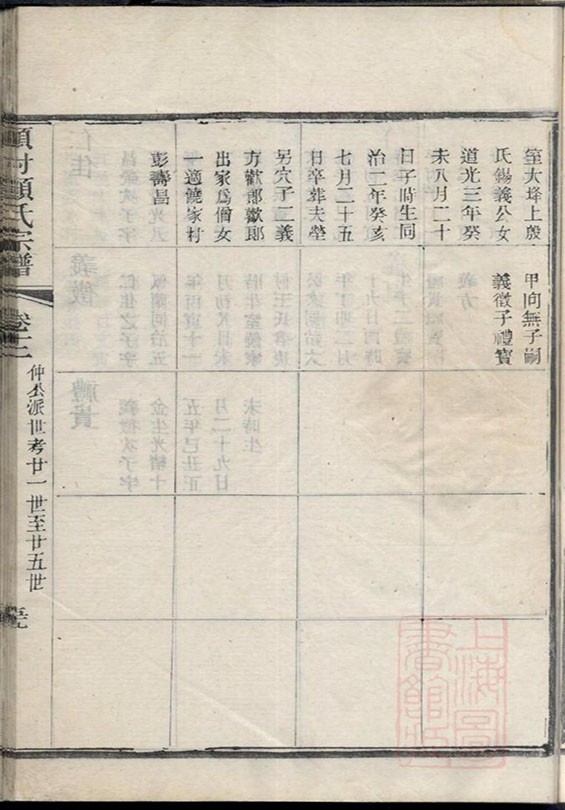 室大垾上殷
氏錫義公女
道光三年癸
未八月二十
日子時生同
治二年癸亥
七月二十五
日卒葬夫塋
另穴子二義
方歡郎歡郎
出家為僧女
一適饒家村
彭壽昌
甲向無子嗣
義徵子禮寶
項村項氏宗譜
卷十二
仲公派世考廿一世至廿五世
上海圖
書館藏